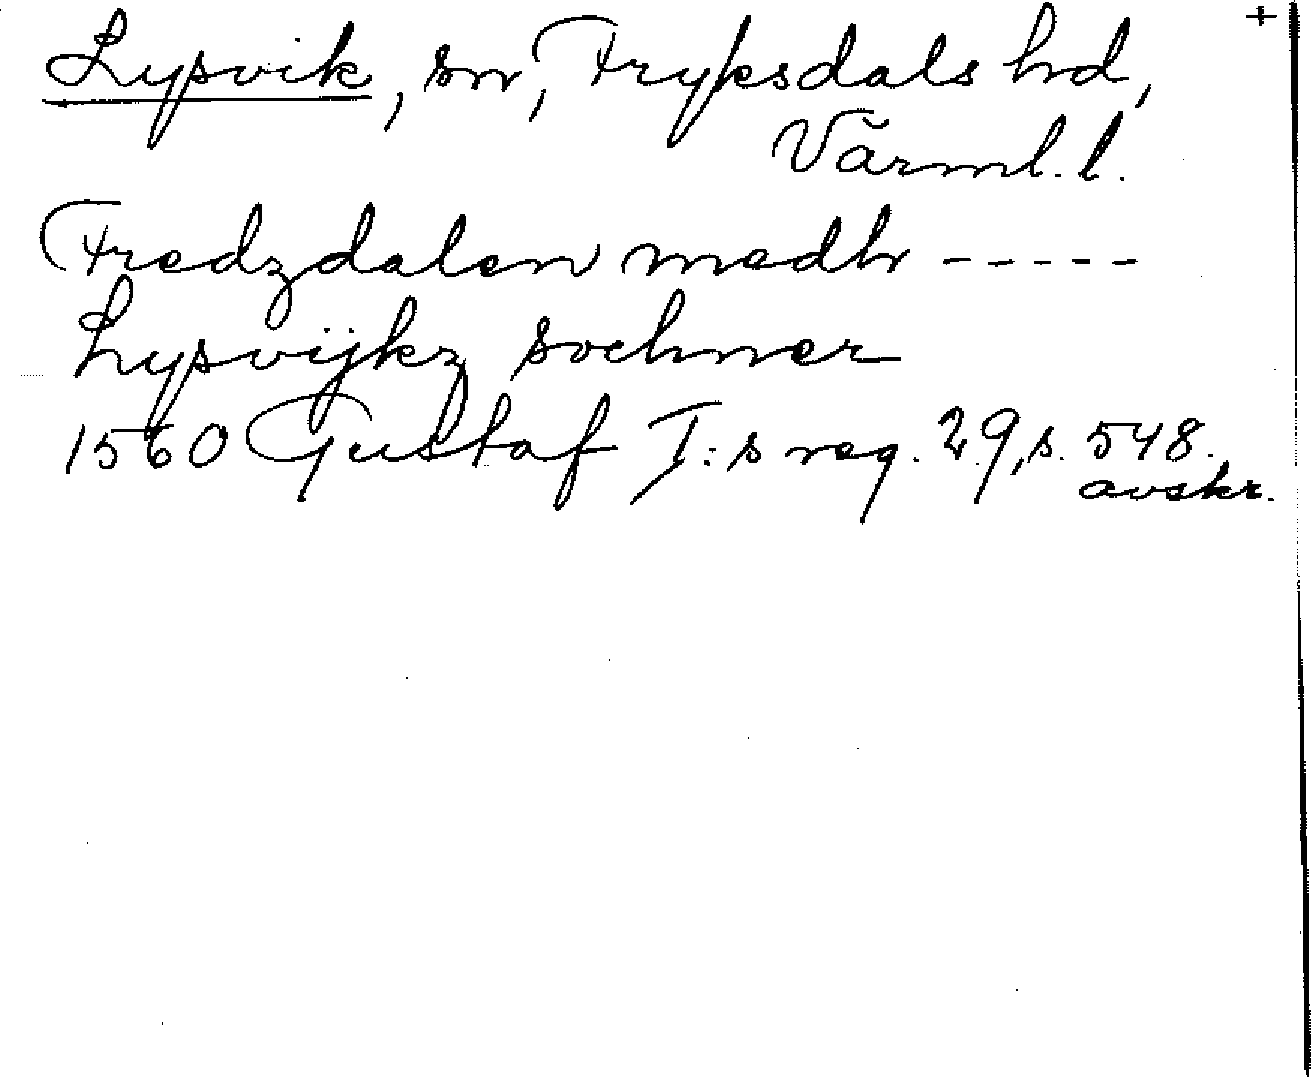 +
Lysvik, sn, Fryksdals hd,
Värml. l.
Fredzdalen medh -----
Lysvijkz sochner
1560 Gustaf I:s reg. 29, s. 548.
avskr.